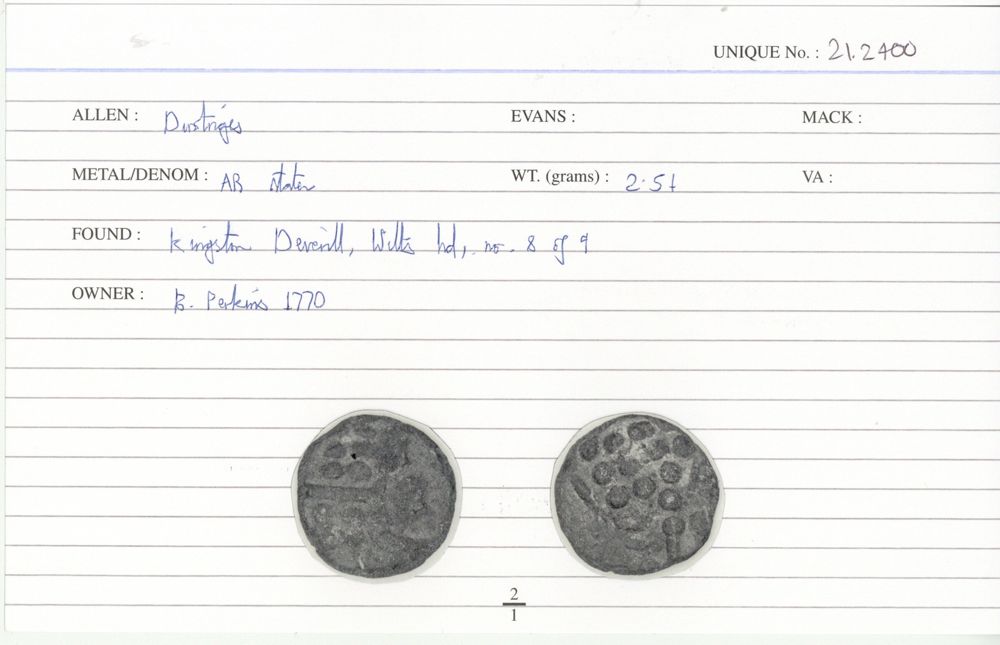 UNIQUE No. : 21.2400
ALLEN : Durotriges EVANS : MACK :
METAL/DENOM : AR stater WT. (grams) : 2.51 VA :
FOUND : Kingston Deverill, Wilts hd, no. 8 of 9
OWNER : B. Perkins 1770
2
1